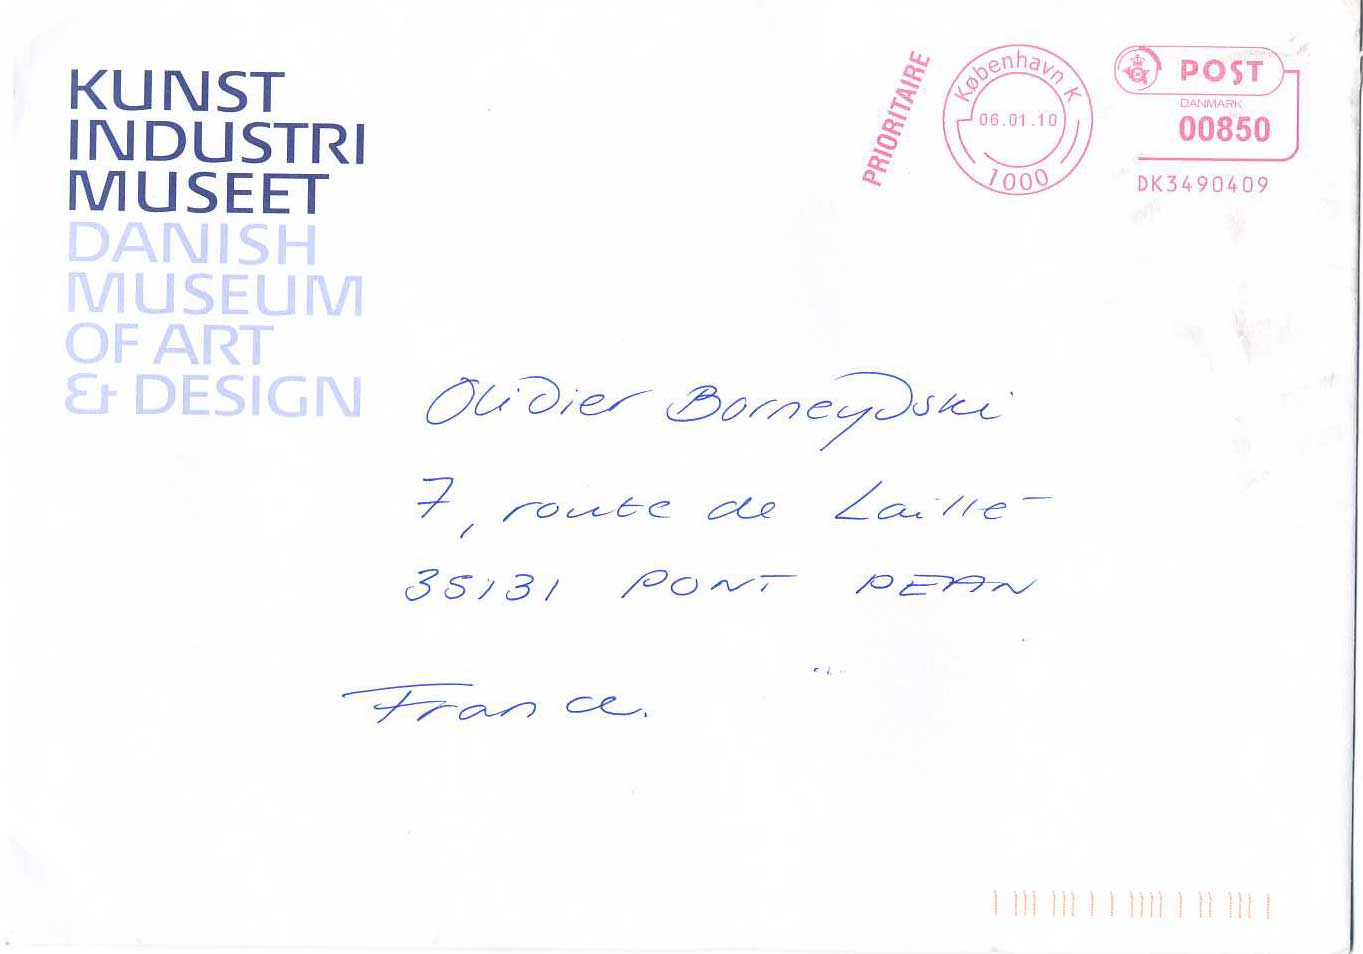 KUNST
INDUSTRI
MUSEET
DANISH
MUSEUM
OF ART
& DESIGN
PRIORITAIRE
København K
06.01.10
1000
POST
DANMARK
00850
DK3490409
Olivier Borneyvski
7, route de Laillé
35131 PONT PEAN
France.